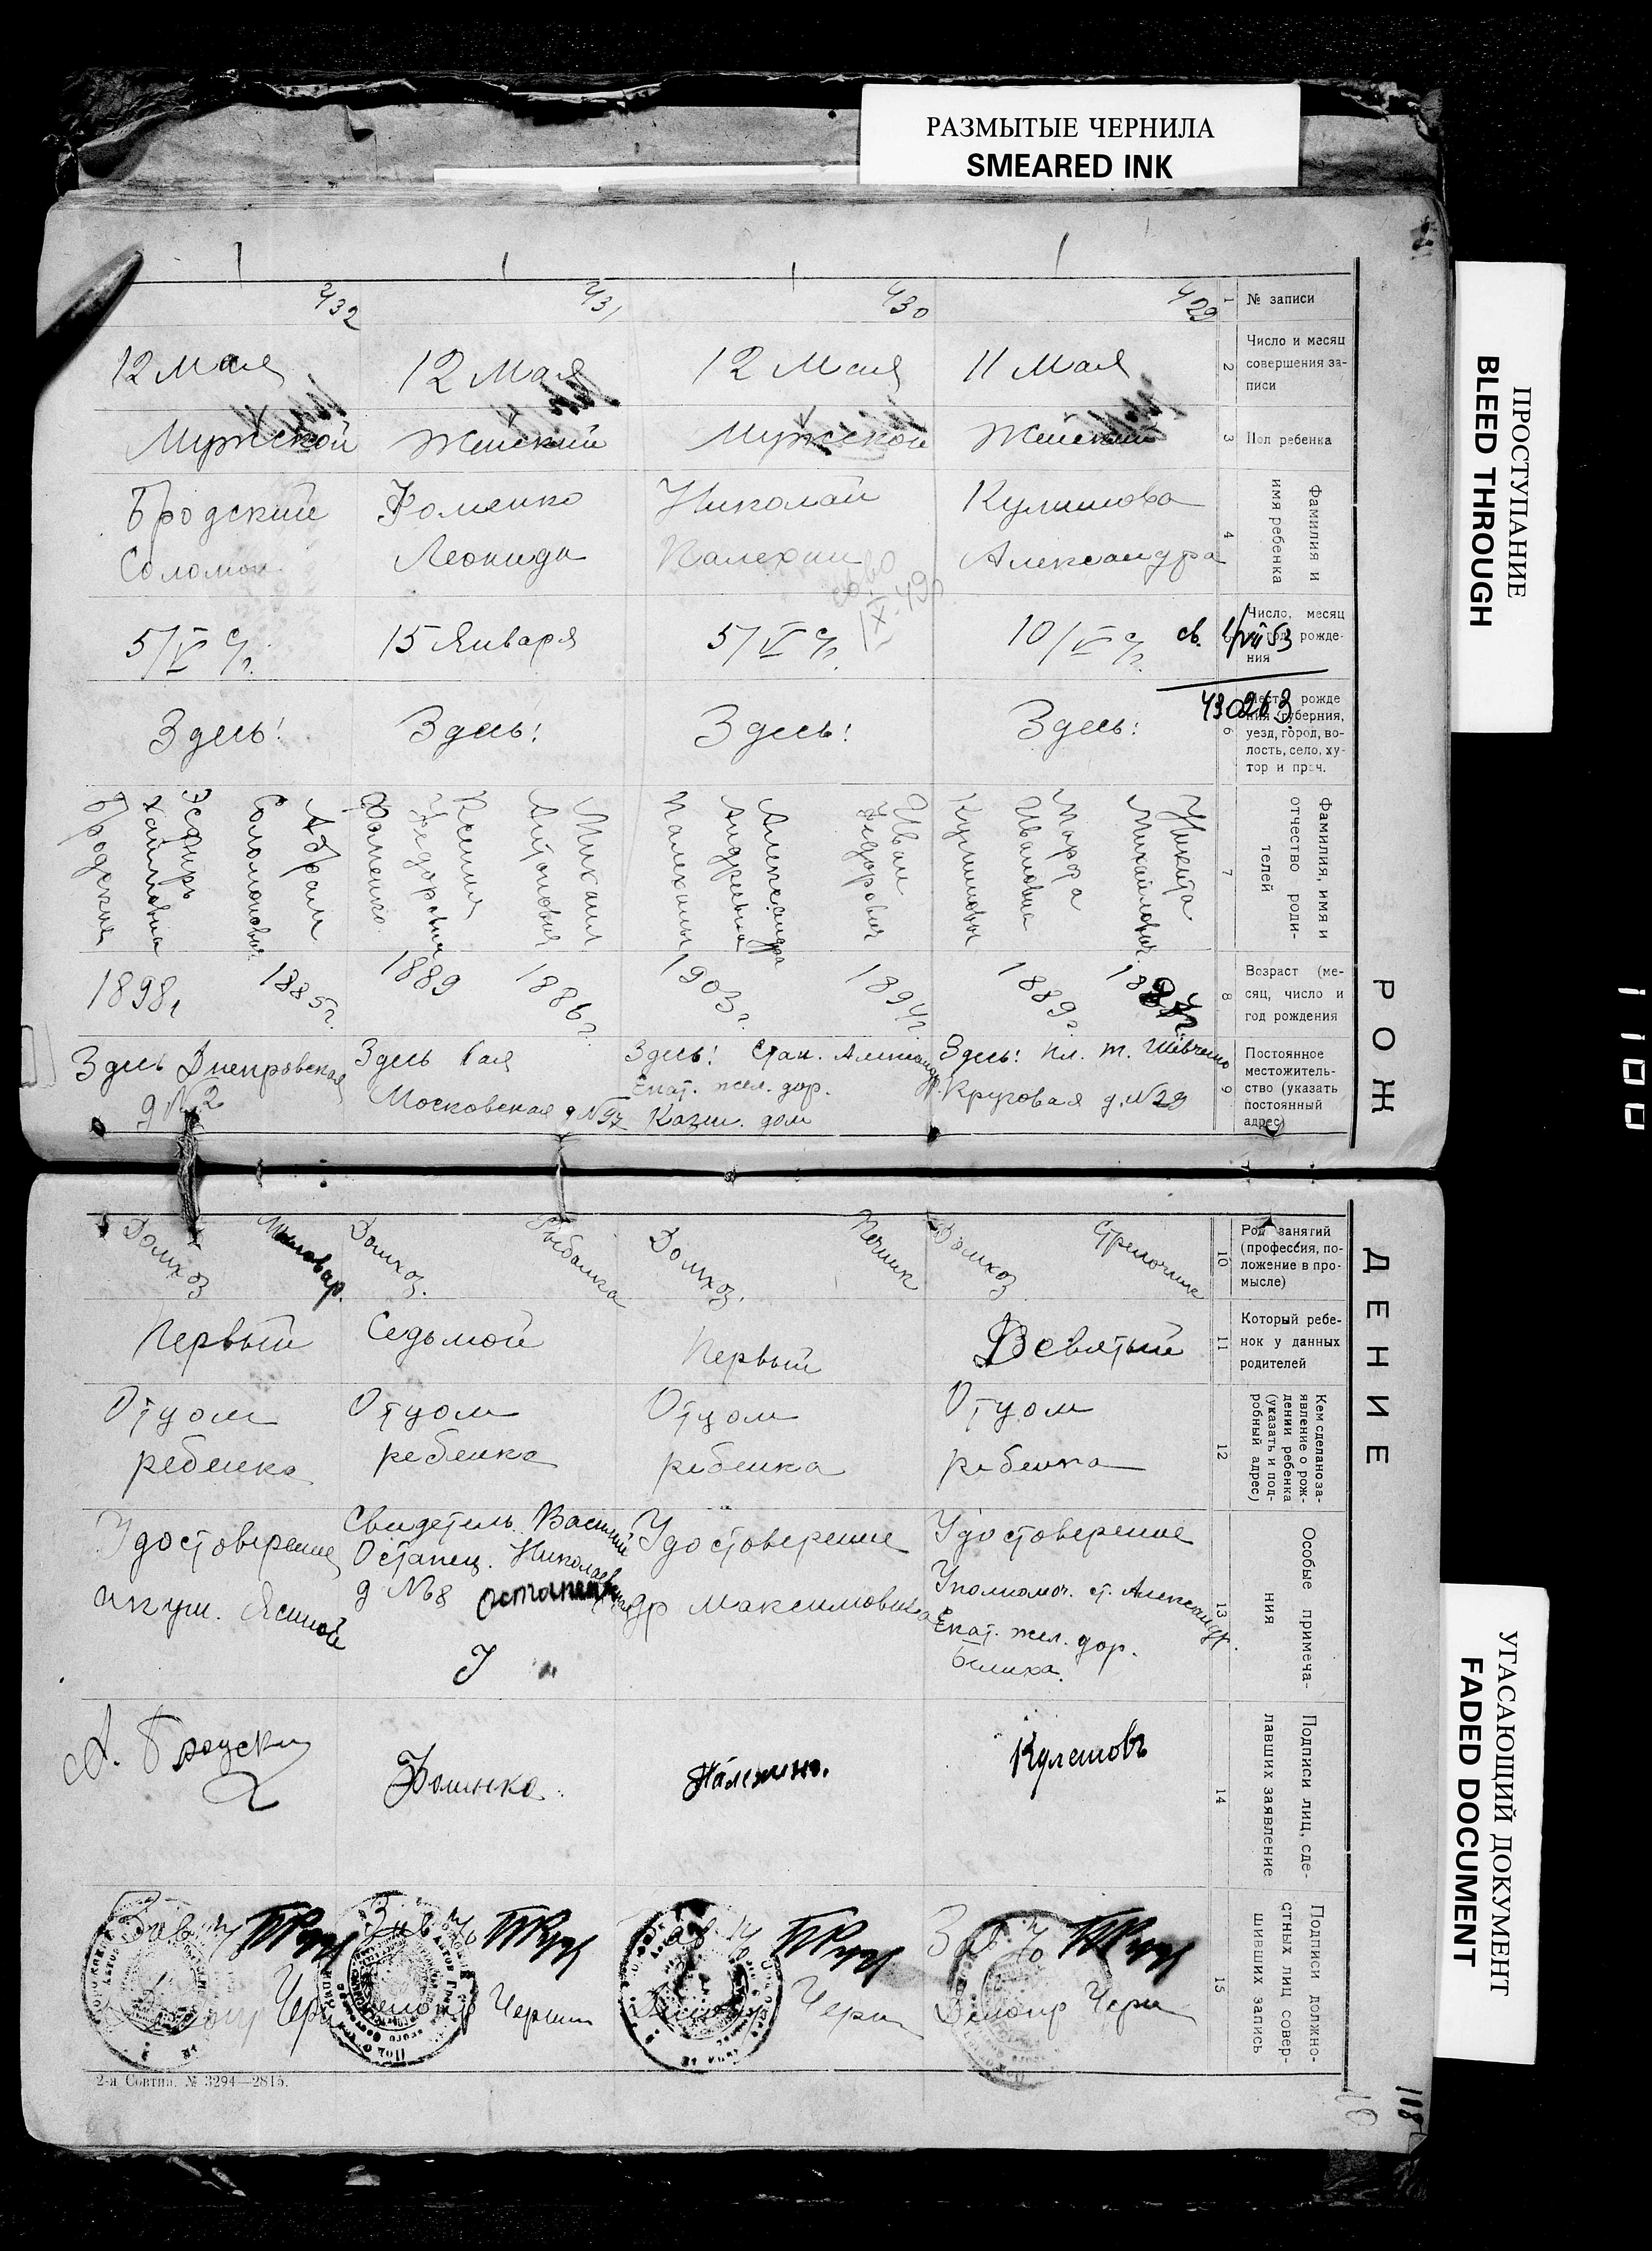 РАЗМЫТЫЕ ЧЕРНИЛА
SMEARED INK
ПРОСТУПАНИЕ
BLEED THROUGH
УГАСАЮЩИЙ ДОКУМЕНТ
FADED DOCUMENT
1100
РОЖДЕНИЕ
1
№ записи
429
430
431
432
2
Число и месяц
совершения за-
писи
11 Мая
12 Мая
12 Мая
12 Мая
3
Пол ребенка
Женский
Мужской
Женский
Мужской
4
Фамилия и
имя ребенка
Кулишова
Александра
Николай
Палехин
Фоменко
Леонида
Бродский
Соломон
Число, месяц
рожде-
ния
10/V с/г.
5/V с/г.
15 Января
5/V с/г.
св.
430263
6
рожде
губерния,
уезд, город, во-
лость, село, ху-
тор и проч.
Здесь:
Здесь!
Здесь!
Здесь!
7
Фамилия, имя и
отчество роди-
телей
Никита
Михайлович
Марфа
Ивановна
Кулишовы
Иван
Федорович
Александра
Андреевна
Палехины
Михаил
Антонович
Ксения
Федоровна
Фоменко
Абрам
Соломонович
Эсфирь
Хаимовна
Бродские
8
Возраст (ме-
сяц, число и
год рождения
1889г.
1894г.
1903г.
1886г.
1889
1885г.
1898г
9
Постоянное
местожитель-
ство (указать
постоянный
адрес)
Здесь! пл. т. Шевченко
Круговая д. №29
Здесь! Стан. Александр.
Екат. жел. дор.
Казен. дом
Здесь 6ая
Московская д №97
Здесь Днепровская
д №2
10
Род занятий
(профессия, по-
ложение в про-
мысле)
Стрелочник
Домхоз
Печник
Домхоз.
Домхоз.
Домхоз
11
Который ребе-
нок у данных
родителей
Девятый
Первый
Седьмой
Первый
12
Кем сделано за-
явление о рож-
дении ребенка
(указать и под-
робный адрес)
Отцом
ребенка
Отцом
ребенка
Отцом
ребенка
Отцом
ребенка
13
Особые примеча-
ния
Удостоверение
Уполномоч. ст. Александр.
Екат. жел. дор.
Белиха.
Удостоверение
др Максимовича
Свидетель Василий
Остапец. Николаевич
д №8
Удостоверение
акуш. Ясиной
14
Подписи лиц, сде-
лавших заявление
Кулешовъ
Фоменко
А. Бродский
15
Подписи должно-
стных лиц совер-
шивших запись
Зав
Делопр
Зав
Зав
Делопр
Зав
2-я Совтип. № 3294—2815.
118